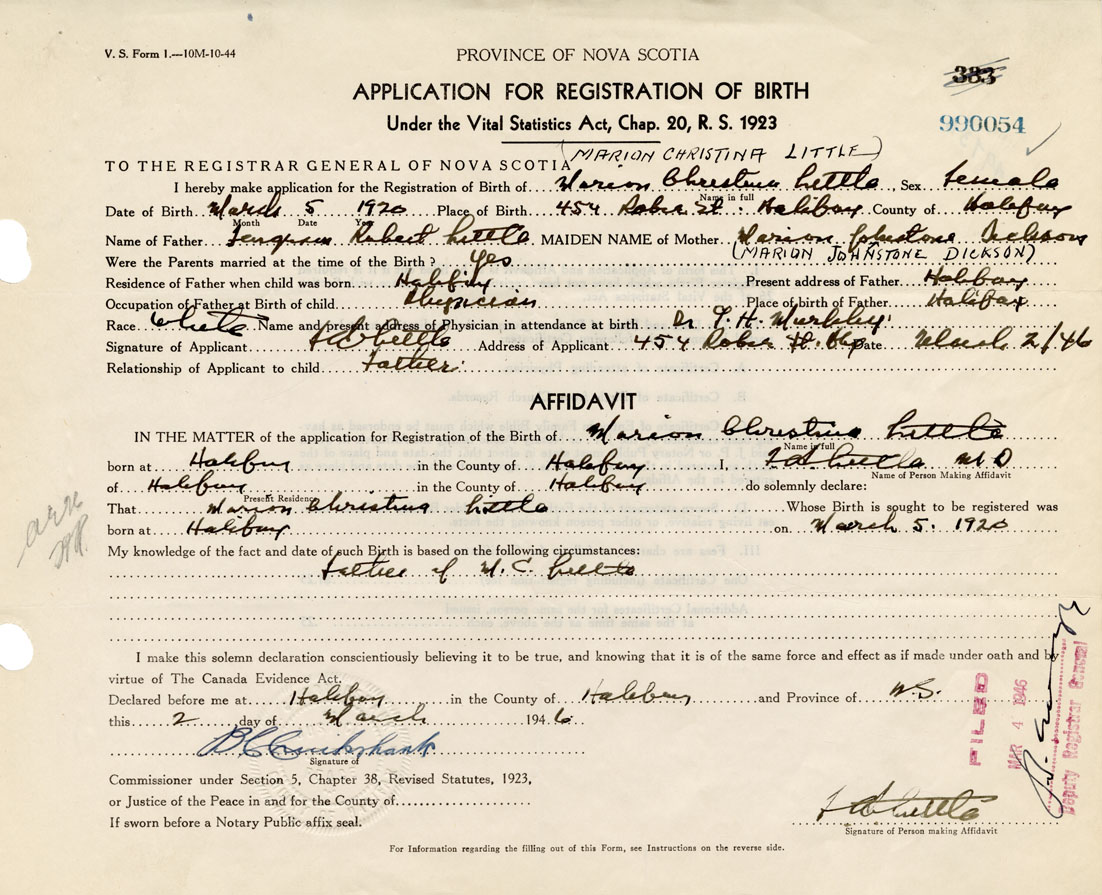 V. S. Form 1.—10M-10-44
PROVINCE OF NOVA SCOTIA
383
APPLICATION FOR REGISTRATION OF BIRTH
990054
Under the Vital Statistics Act, Chap. 20, R. S. 1923
(MARION CHRISTINA LITTLE)
TO THE REGISTRAR GENERAL OF NOVA SCOTIA
I hereby make application for the Registration of Birth of Marion Christina Little, Sex Female
Name in full
Date of Birth March 5 1920 Place of Birth 454 Robie St. Halifax County of Halifax
Month Date Year
Name of Father Robert Little MAIDEN NAME of Mother Marion Johnstone Dickson
(MARION JOHNSTONE DICKSON)
Were the Parents married at the time of the Birth? Yes
Residence of Father when child was born Halifax Present address of Father Halifax
Occupation of Father at Birth of child Physician Place of birth of Father Halifax
Race White Name and present address of Physician in attendance at birth Dr
Signature of Applicant Little Address of Applicant 454 Robie St. Hfx Date March 2/46
Relationship of Applicant to child Father
AFFIDAVIT
IN THE MATTER of the application for Registration of the Birth of Marion Christina Little
Name in full
born at Halifax in the County of Halifax I, Little M D
Name of Person Making Affidavit
of Halifax in the County of Halifax do solemnly declare:
Present Residence
That Marion Christina Little Whose Birth is sought to be registered was
born at Halifax on March 5. 1920
My knowledge of the fact and date of such Birth is based on the following circumstances:
Father of M. C. Little
I make this solemn declaration conscientiously believing it to be true, and knowing that it is of the same force and effect as if made under oath and by
virtue of The Canada Evidence Act.
Declared before me at Halifax in the County of Halifax and Province of N.S.
this 2 day of March 1946.
Signature of
Commissioner under Section 5, Chapter 38, Revised Statutes, 1923,
or Justice of the Peace in and for the County of
If sworn before a Notary Public affix seal.
Little
Signature of Person making Affidavit
For Information regarding the filling out of this Form, see Instructions on the reverse side.
FILED
MAR 4 1946
Deputy Registrar General